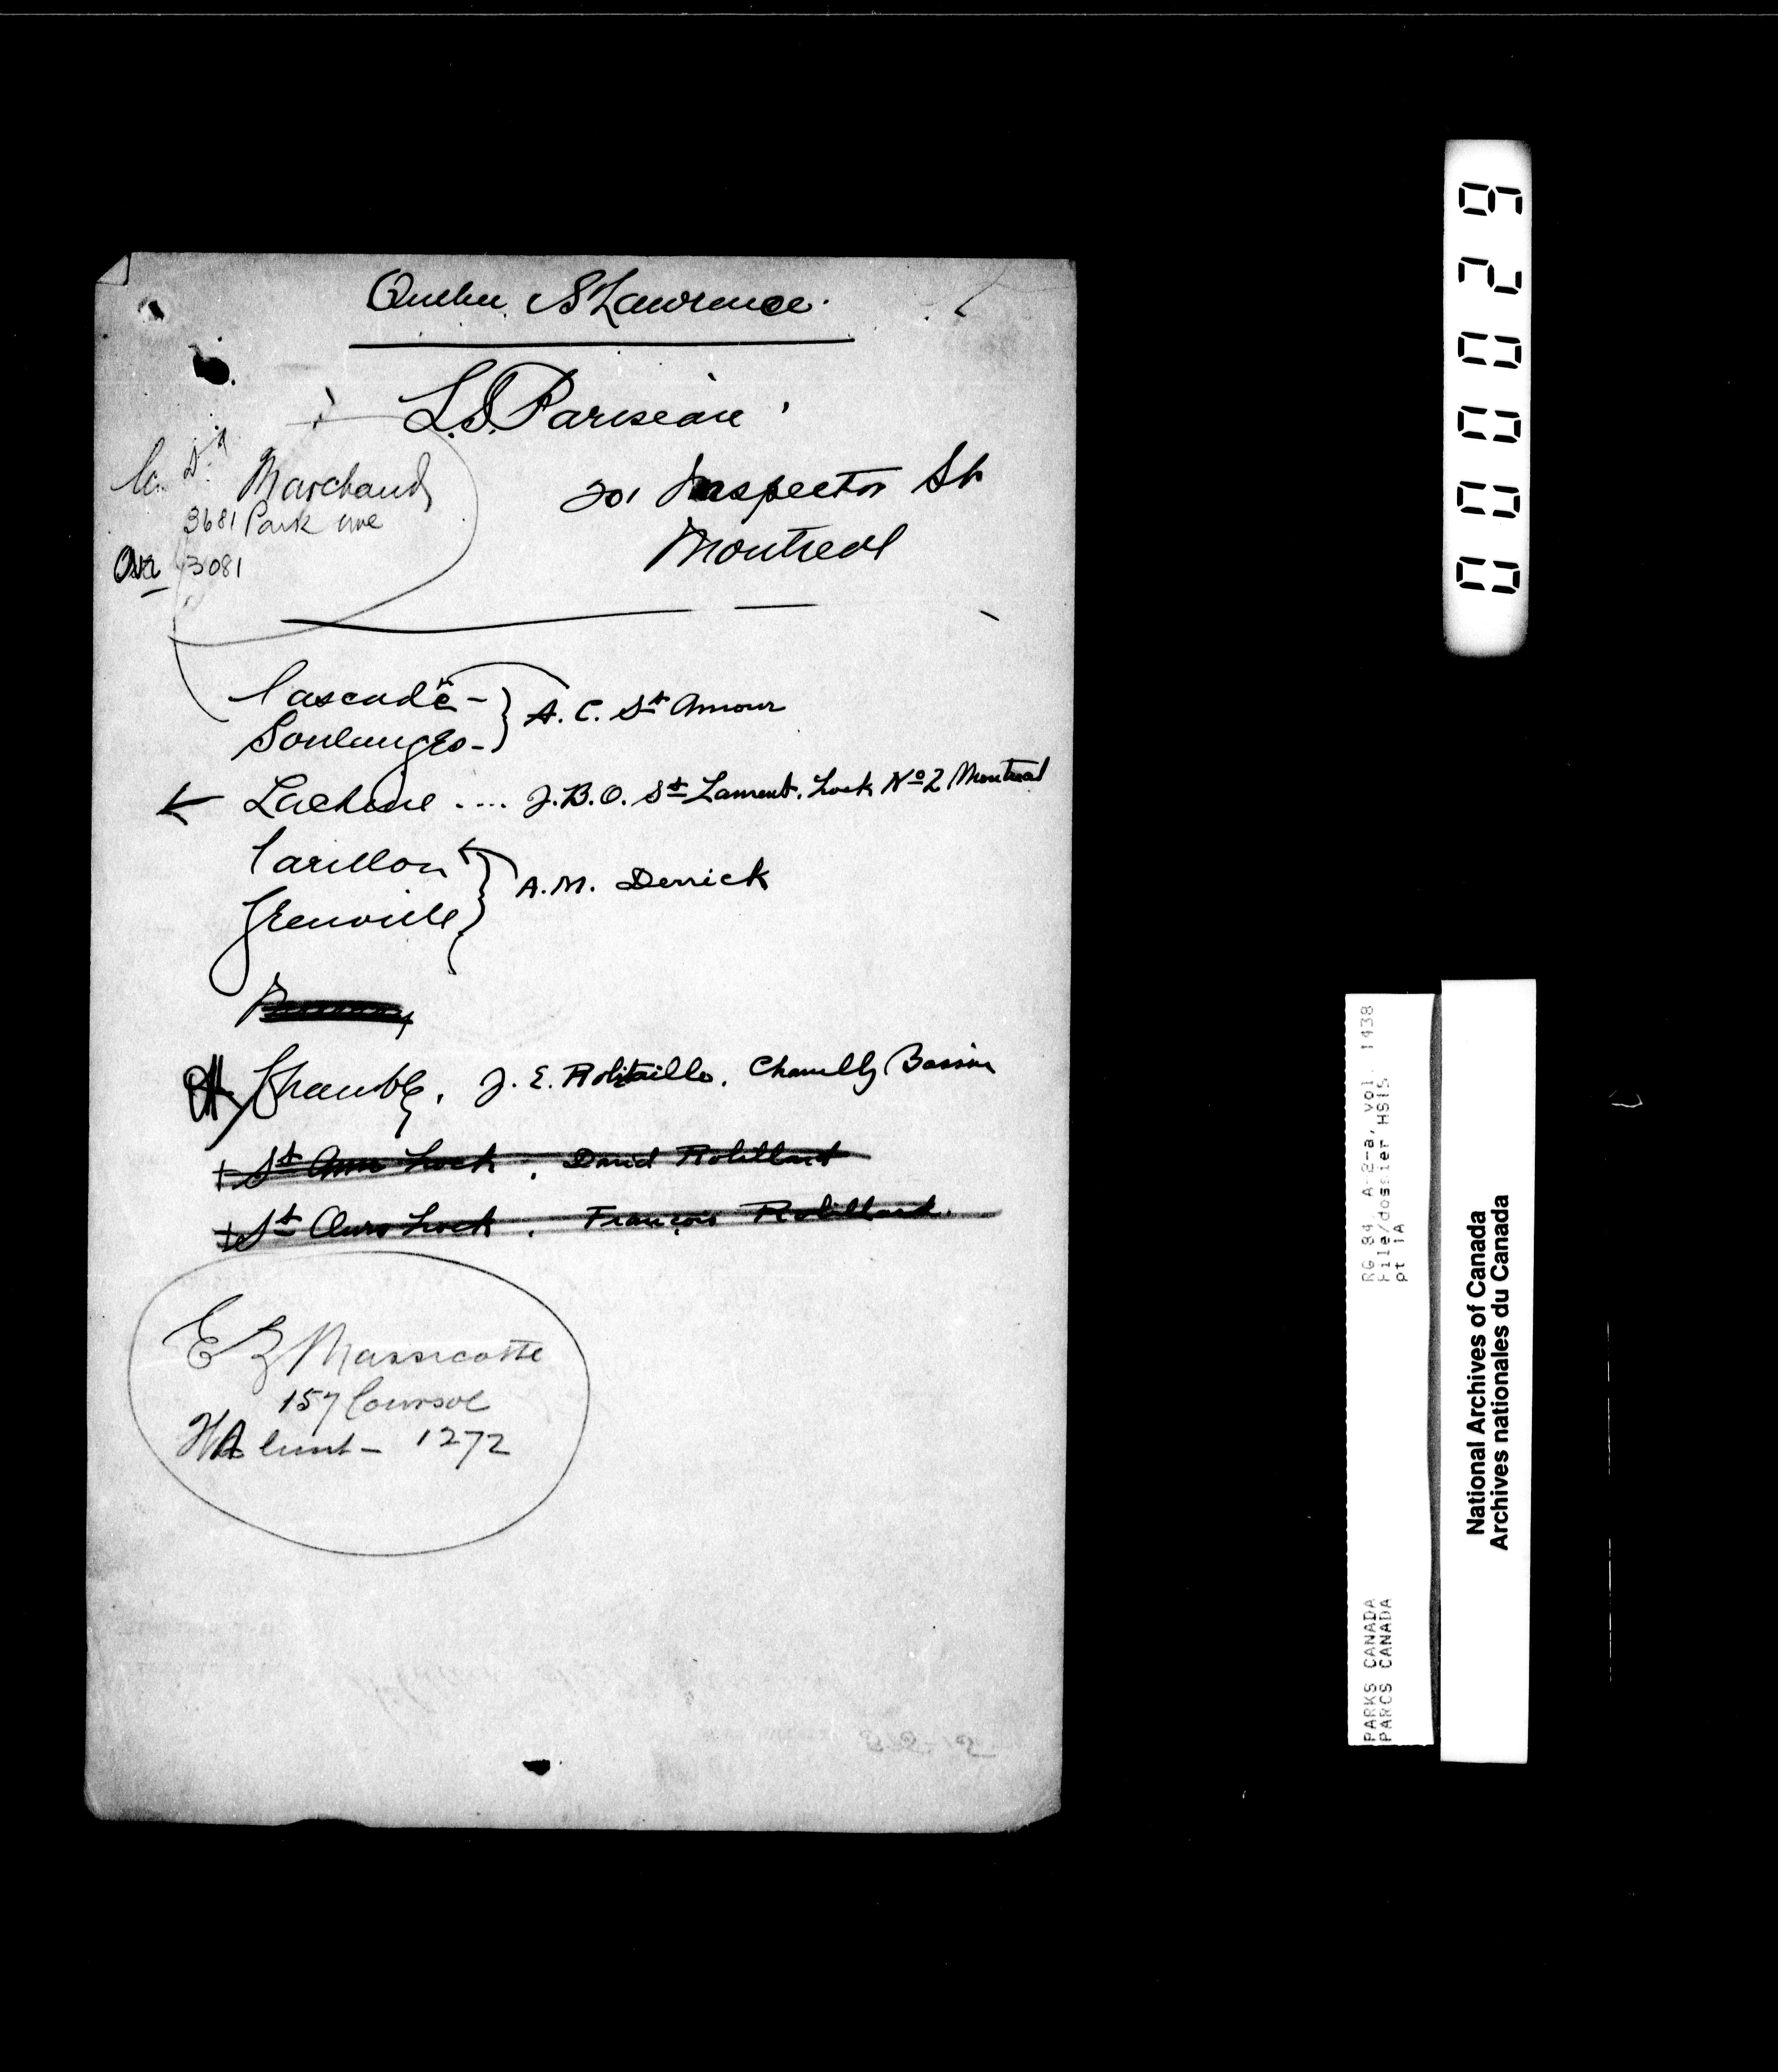 Quebec St Lawrence.
L.S. Pariseau
Marchand
3681 Park ave
3081
201 Inspector St
Montreal
Cascade -
Soulanges -
A. C. St Amour
Lachine .... J.B.O. St Laurent. Lock No 2 Montreal
Carillon
Grenville
A. M. Derrick
Chambly. J. E. Robitaille. Chambly Bassin
St Ann Lock. David Robillard
St Ours Lock. François Robillard.
E Z Massicotte
157 Coursol
1272
620000
RG 84, A-2-a, vol. 1438
File/dossier HS15
pt 1A
PARKS CANADA
PARCS CANADA
National Archives of Canada
Archives nationales du Canada